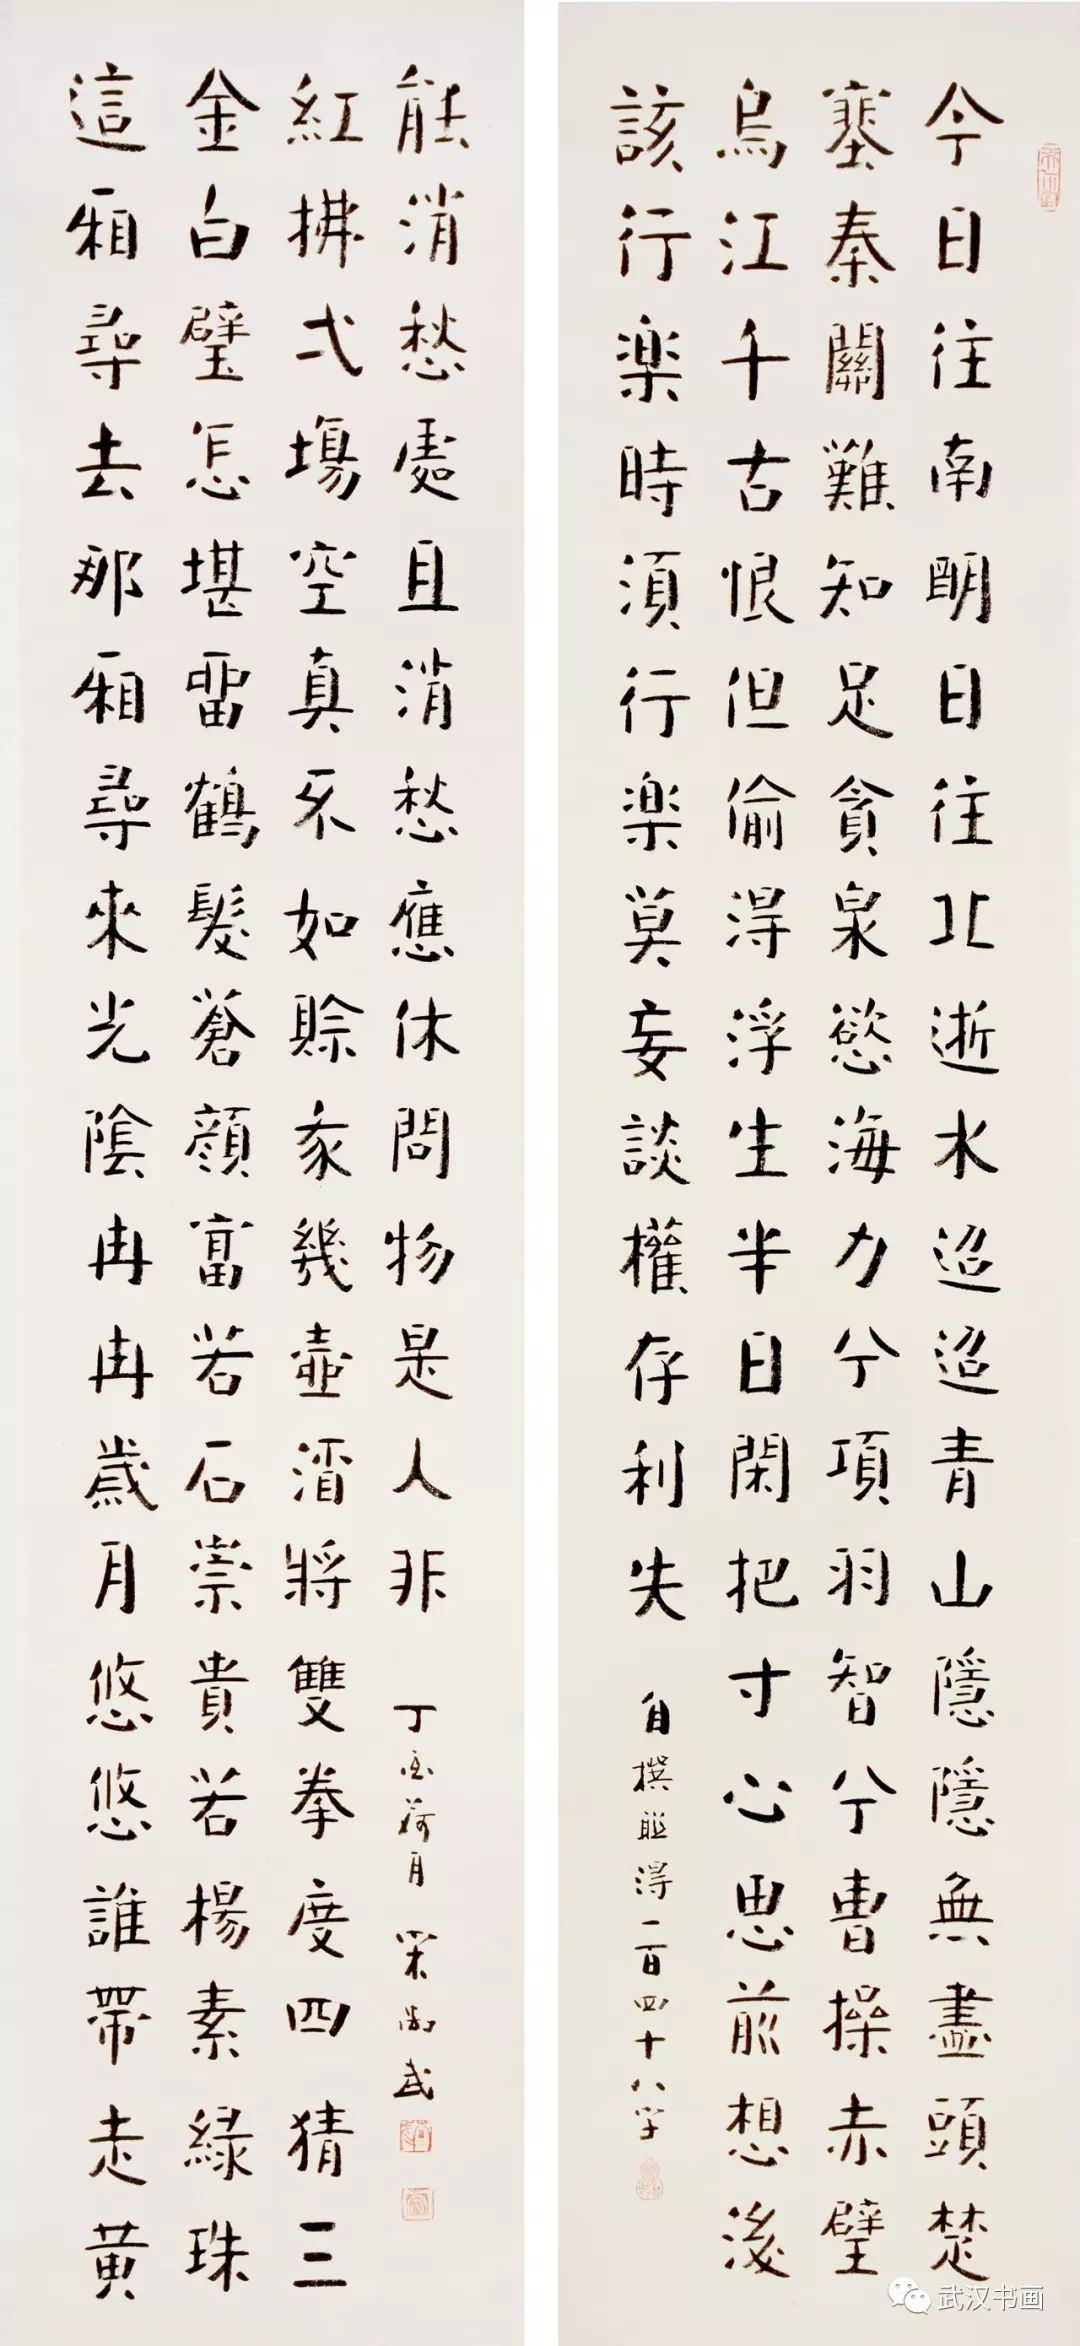 今日往南明日往北逝水迢迢青山隱隱無盡頭楚
塞秦關難知足貪泉慾海力兮項羽智兮曹操赤壁
烏江千古恨但偷得浮生半日閑把寸心思前想後
該行楽時須行楽莫妄談權存利失
自撰聯得一百四十八字
這廂尋去那廂尋來光陰冉冉歲月悠悠誰帶走黃
金白璧怎堪留鶴髮蒼顏富若石崇貴若楊素綠珠
紅拂弌場空真不如賒家幾壺酒將雙拳度四猜三
能消愁處且消愁應休問物是人非
丁酉荷月 尚武
武汉书画